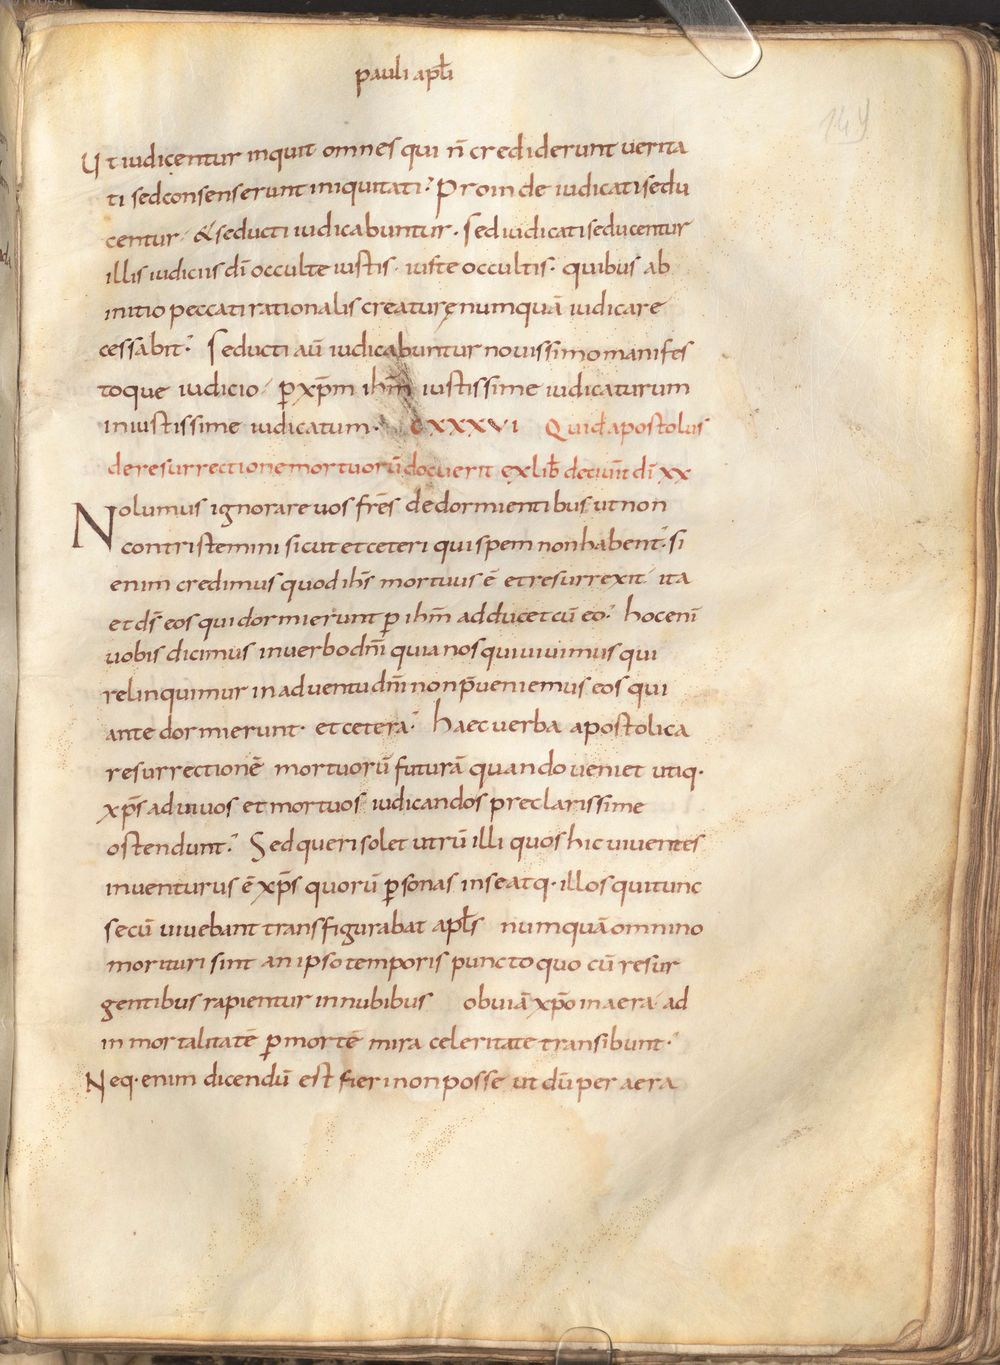 pauli apłi
149
Ut iudicentur inquit omnes qui n̄ crediderunt uerita
ti sed consenserunt iniquitati; Proinde iudicati sedu
centur & seducti iudicabuntur. Sed iudicati seducentur
illis iudiciis dī occulte iustis. iuste occultis. quibus ab
initio peccati rationalis creaturę numquā iudicare
cessabit; Seducti aū iudicabuntur nouissimo manifes
toque iudicio p̱ xp̄m ih̄m iustissime iudicaturum
iniustissime iudicatum. CXXXVI Quid apostolus
de resurrectione mortuorū docuerit ex lib̄ de ciuit̄ dī xx
Nolumus ignorare uos fr̄es de dormientibus ut non
contristemini sicut et ceteri qui spem non habent; si
enim credimus quod ih̄s mortuus ē et resurrexit ita
et d̄s eos qui dormierunt p̱ ih̄m adducet cū eo; hoc eni̅
uobis dicimus in uerbo dn̄i quia nos qui uiuimus qui
relinquimur in aduentu dn̄i non p̄ueniemus eos qui
ante dormierunt. et cetera; haec uerba apostolica
resurrectionē mortuorū futurā quando ueniet utiq.
xp̄s ad uiuos et mortuos iudicandos preclarissime
ostendunt; Sed queri solet utrū illi quos hic uiuentes
inuenturus ē xp̄s quorū p̱sonas in se atq. illos qui tunc
secū uiuebant transfigurabat apłs numquā omnino
morituri sint an ipso temporis puncto quo cū resur
gentibus rapientur in nubibus obuiā xp̄o in aera ad
inmortalitatē p̱ mortē mira celeritate transibunt;
Neq. enim dicendū est fieri non posse ut dū per aera